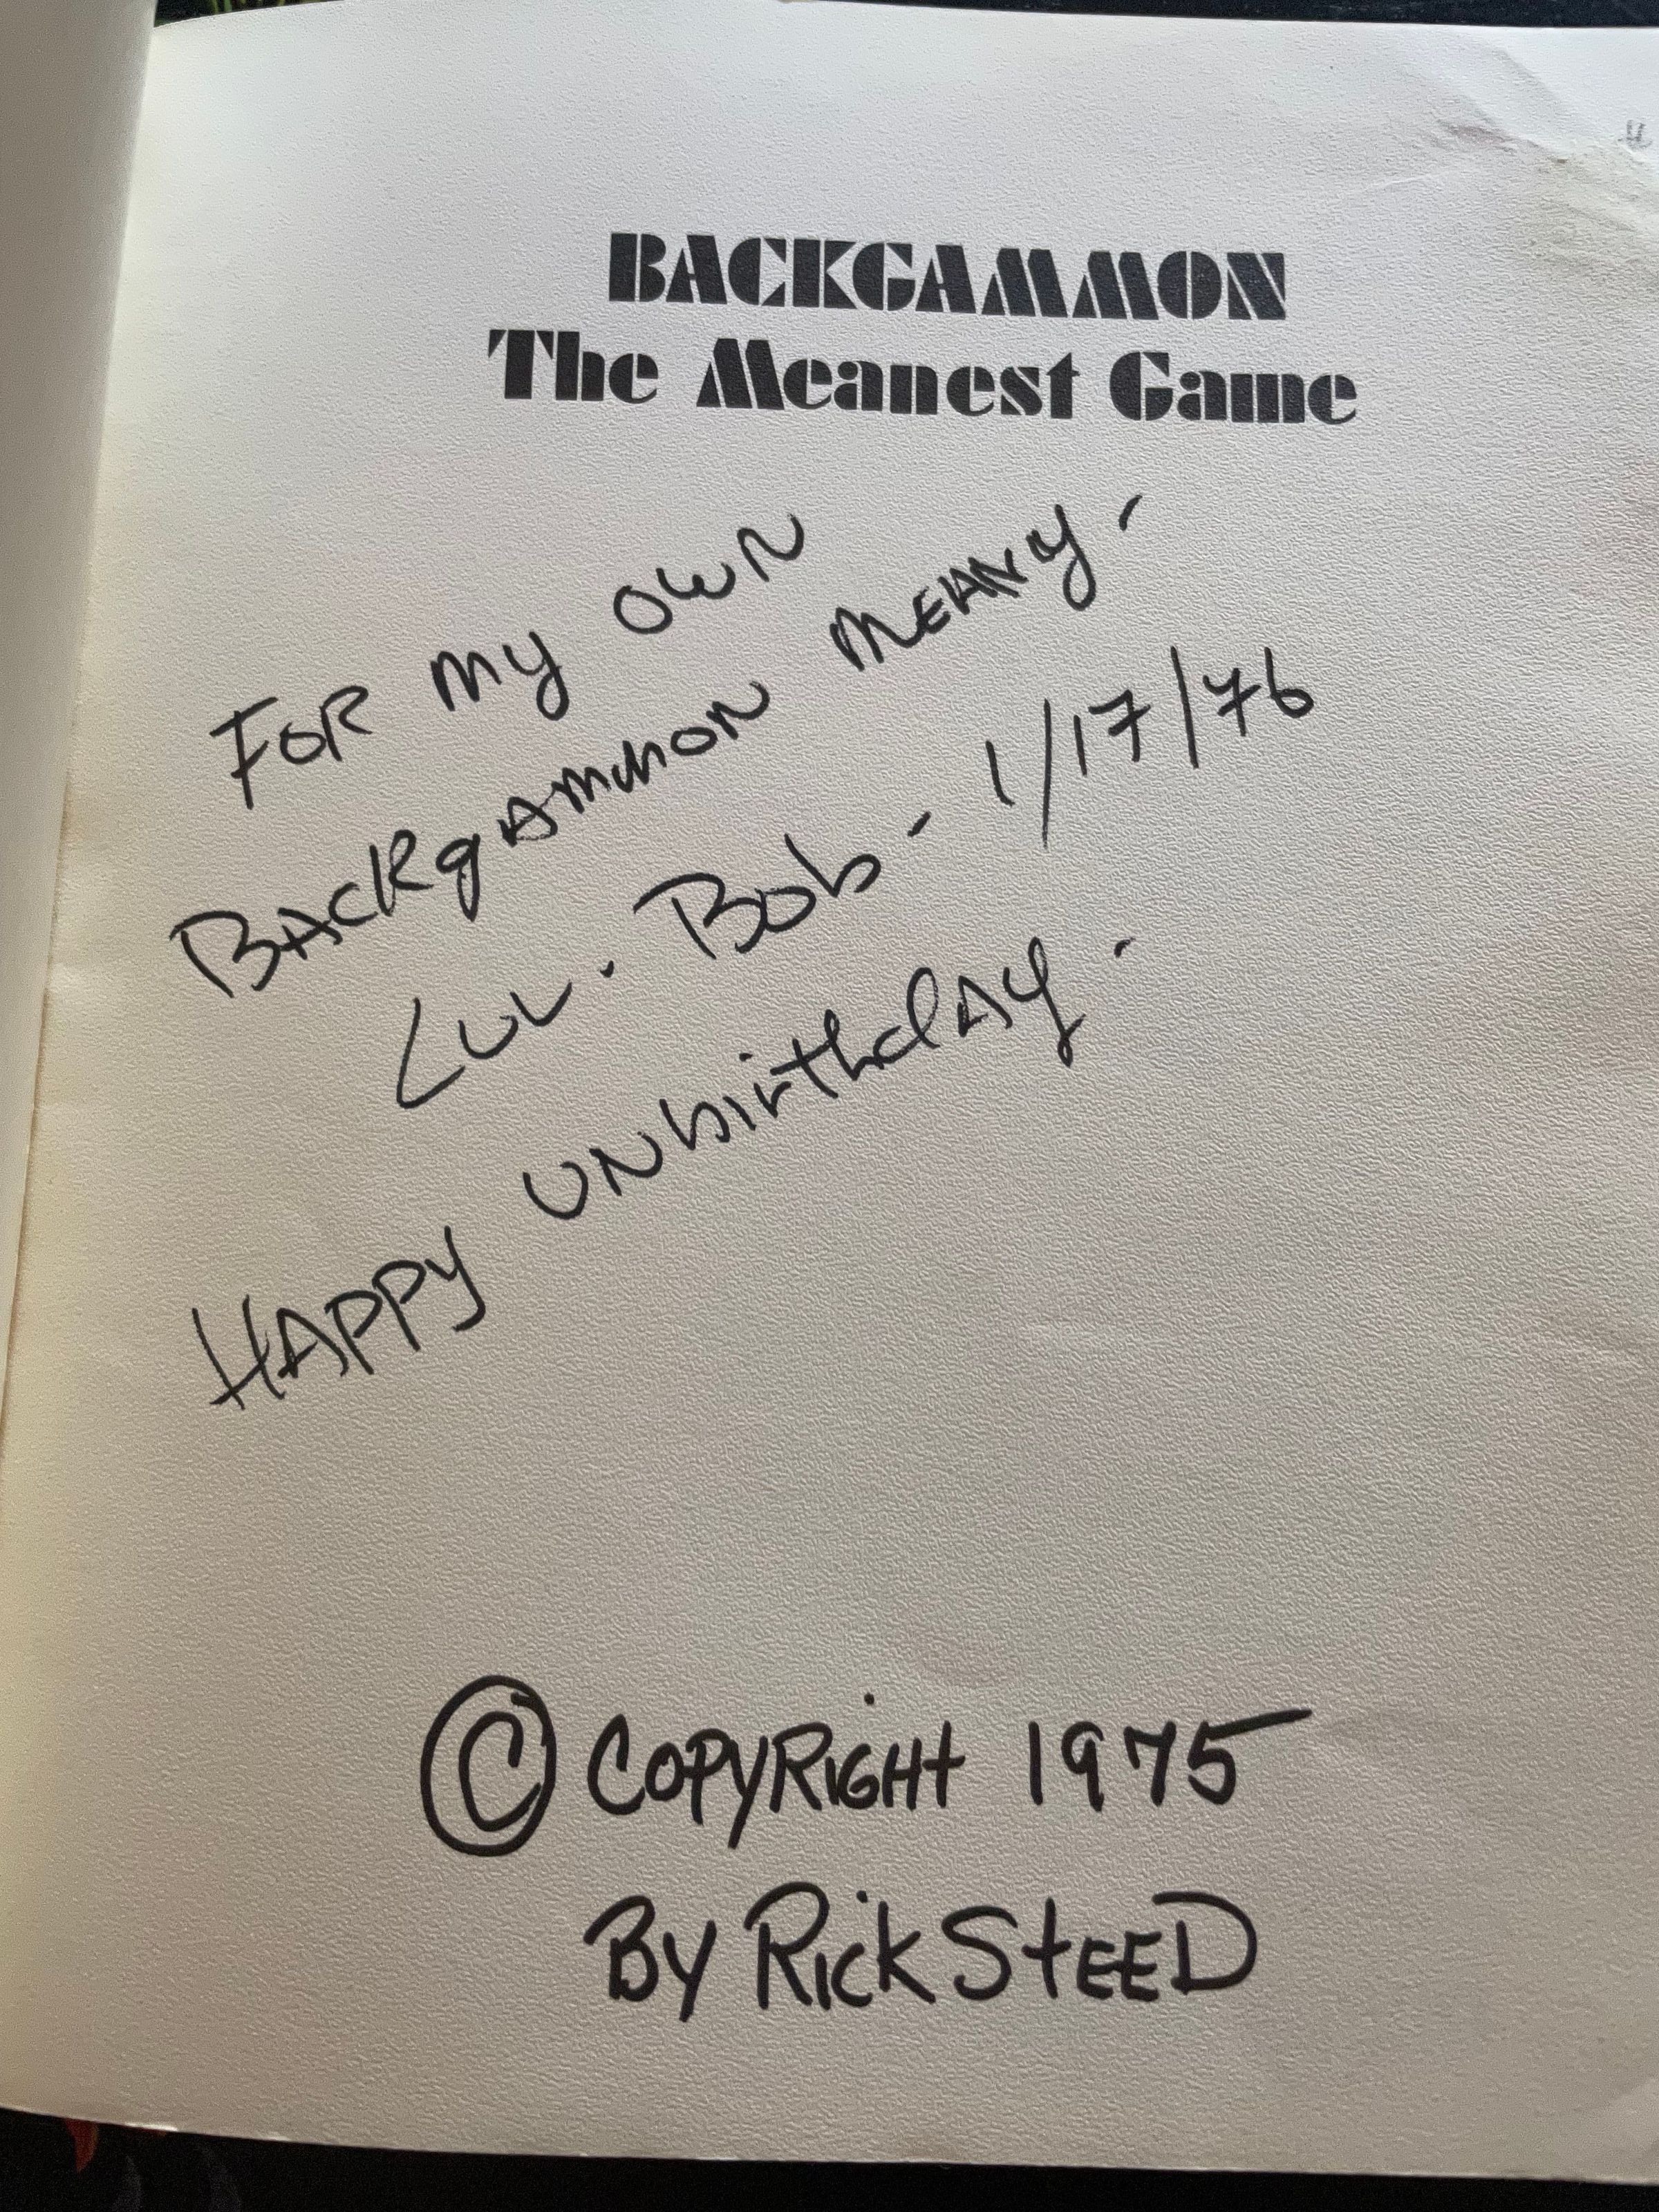 BACKGAMMON
The Meanest Game
FOR MY OWN
BACKGAMMON MEANY -
LUV. Bob - 1/17/76
HAPPY UNbirthdAY -
© COPYRIGHT 1975
By RICK STEED